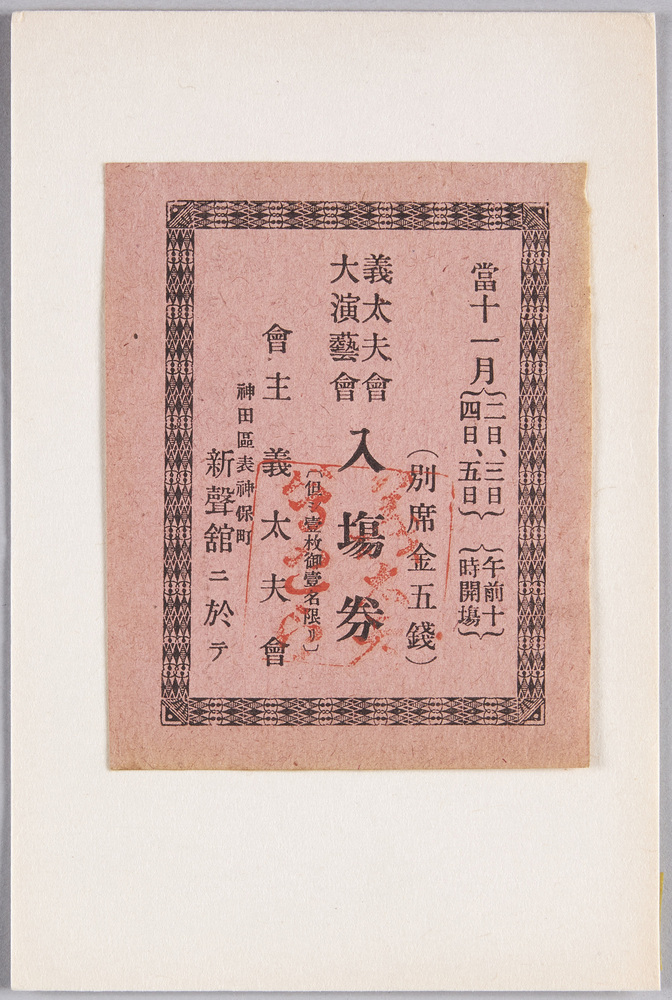 當十一月
二日、三日
四日、五日
午前十
時開塲
(別席金五錢)
義太夫會
大演藝會
入塲券
〔但シ壹枚御壹名限リ〕
會主 義太夫會
神田區表神保町
新聲舘ニ於テ